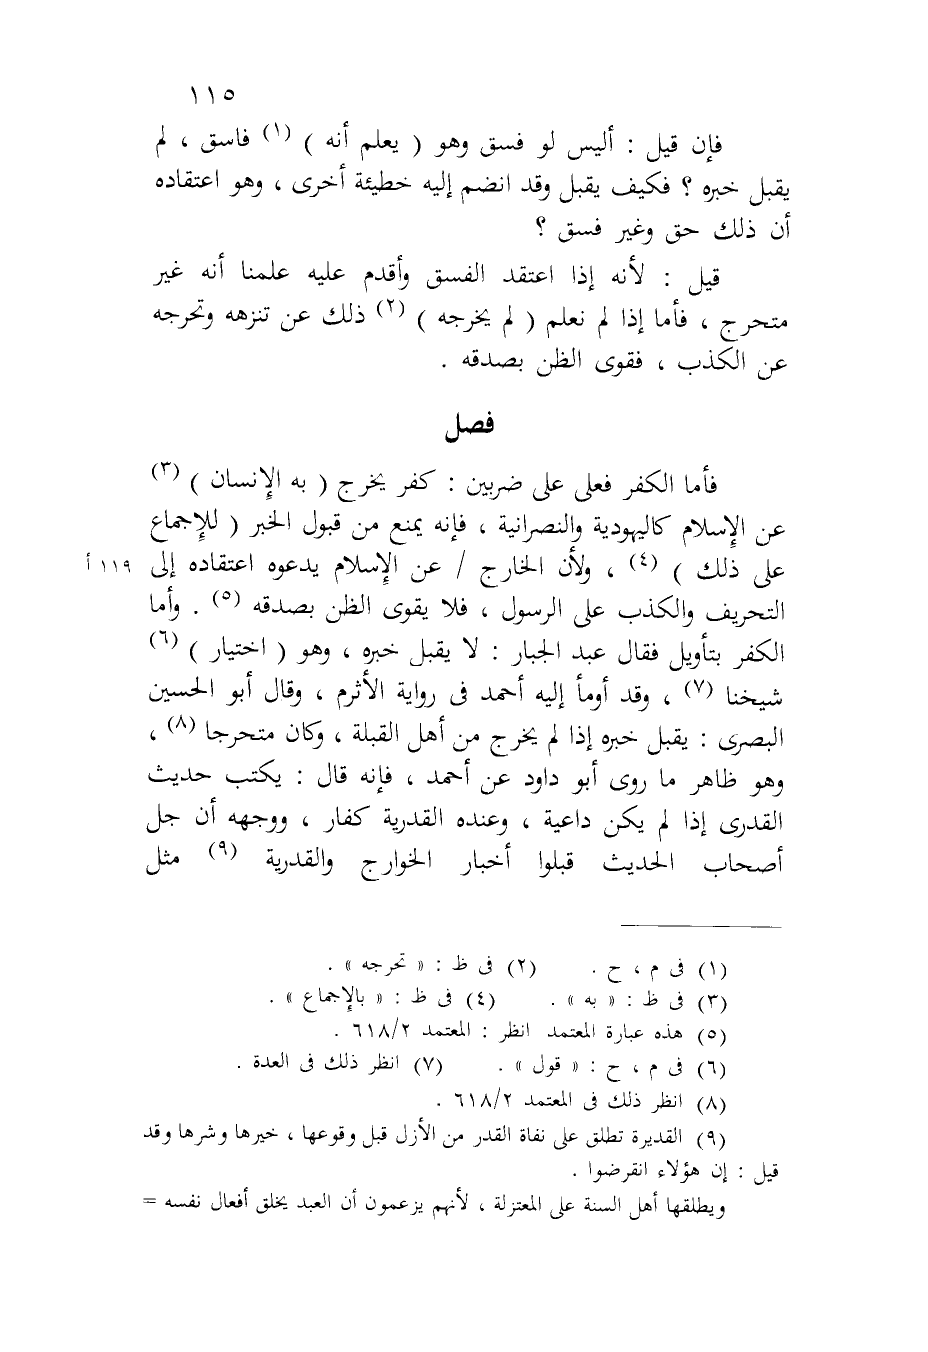 ١١٥
فإن قيل : أليس لو فسق وهو ( يعلم أنه ) (١) فاسق ، لم
يقبل خبره ؟ فكيف يقبل وقد انضم إليه خطيئة أخرى ، وهو اعتقاده
أن ذلك حق وغير فسق ؟
قيل : لأنه إذا اعتقد الفسق وأقدم عليه علمنا أنه غير
متحرج ، فأما إذا لم نعلم ( لم يخرجه ) (٢) ذلك عن تنزهه وتحرجه
عن الكذب ، فقوى الظن بصدقه .
فصل
فأما الكفر فعلى على ضربين : كفر يخرج ( به الإنسان ) (٣)
عن الإسلام كاليهودية والنصرانية ، فإنه يمنع من قبول الخبر ( للإجماع
على ذلك ) (٤) ، ولأن الخارج / عن الإسلام يدعوه اعتقاده إلى ١١٩ أ
التحريف والكذب على الرسول ، فلا يقوى الظن بصدقه (٥) . وأما
الكفر بتأويل فقال عبد الجبار : لا يقبل خبره ، وهو ( اختيار ) (٦)
شيخنا (٧) ، وقد أومأ إليه أحمد فى رواية الأثرم ، وقال أبو الحسين
البصرى : يقبل خبره إذا لم يخرج من أهل القبلة ، وكان متحرجا (٨) ،
وهو ظاهر ما روى أبو داود عن أحمد ، فإنه قال : يكتب حديث
القدرى إذا لم يكن داعية ، وعنده القدرية كفار ، ووجهه أن جل
أصحاب الحديث قبلوا أخبار الخوارج والقدرية (٩) مثل
(١) فى م ، ح . (٢) فى ظ : « تحرجه » .
(٣) فى ظ : « به » . (٤) فى ظ : « بالإجماع » .
(٥) هذه عبارة المعتمد انظر : المعتمد ٦١٨/٢ .
(٦) فى م ، ح : « قول » . (٧) انظر ذلك فى العدة .
(٨) انظر ذلك فى المعتمد ٦١٨/٢ .
(٩) القديرة تطلق على نفاة القدر من الأزل قبل وقوعها ، خيرها وشرها وقد
قيل : إن هؤلاء انقرضوا .
ويطلقها أهل السنة على المعتزلة ، لأنهم يزعمون أن العبد يخلق أفعال نفسه =